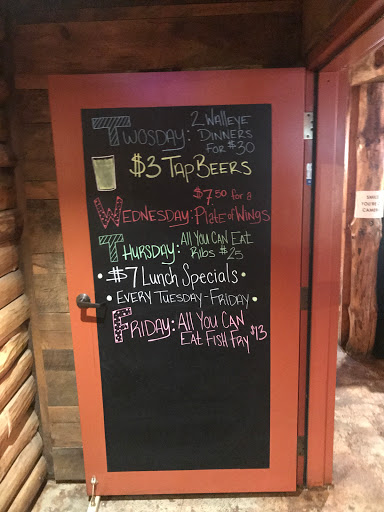 Twosday: 2 Walleye
Dinners
for $30
$3 Tap Beers
$7.50 for a
Wednesday: Plate of Wings
Thursday: All You Can Eat
Ribs $25
• $7 Lunch Specials •
• Every Tuesday - Friday •
Friday: All You Can
Eat Fish Fry $13
YOU'RE